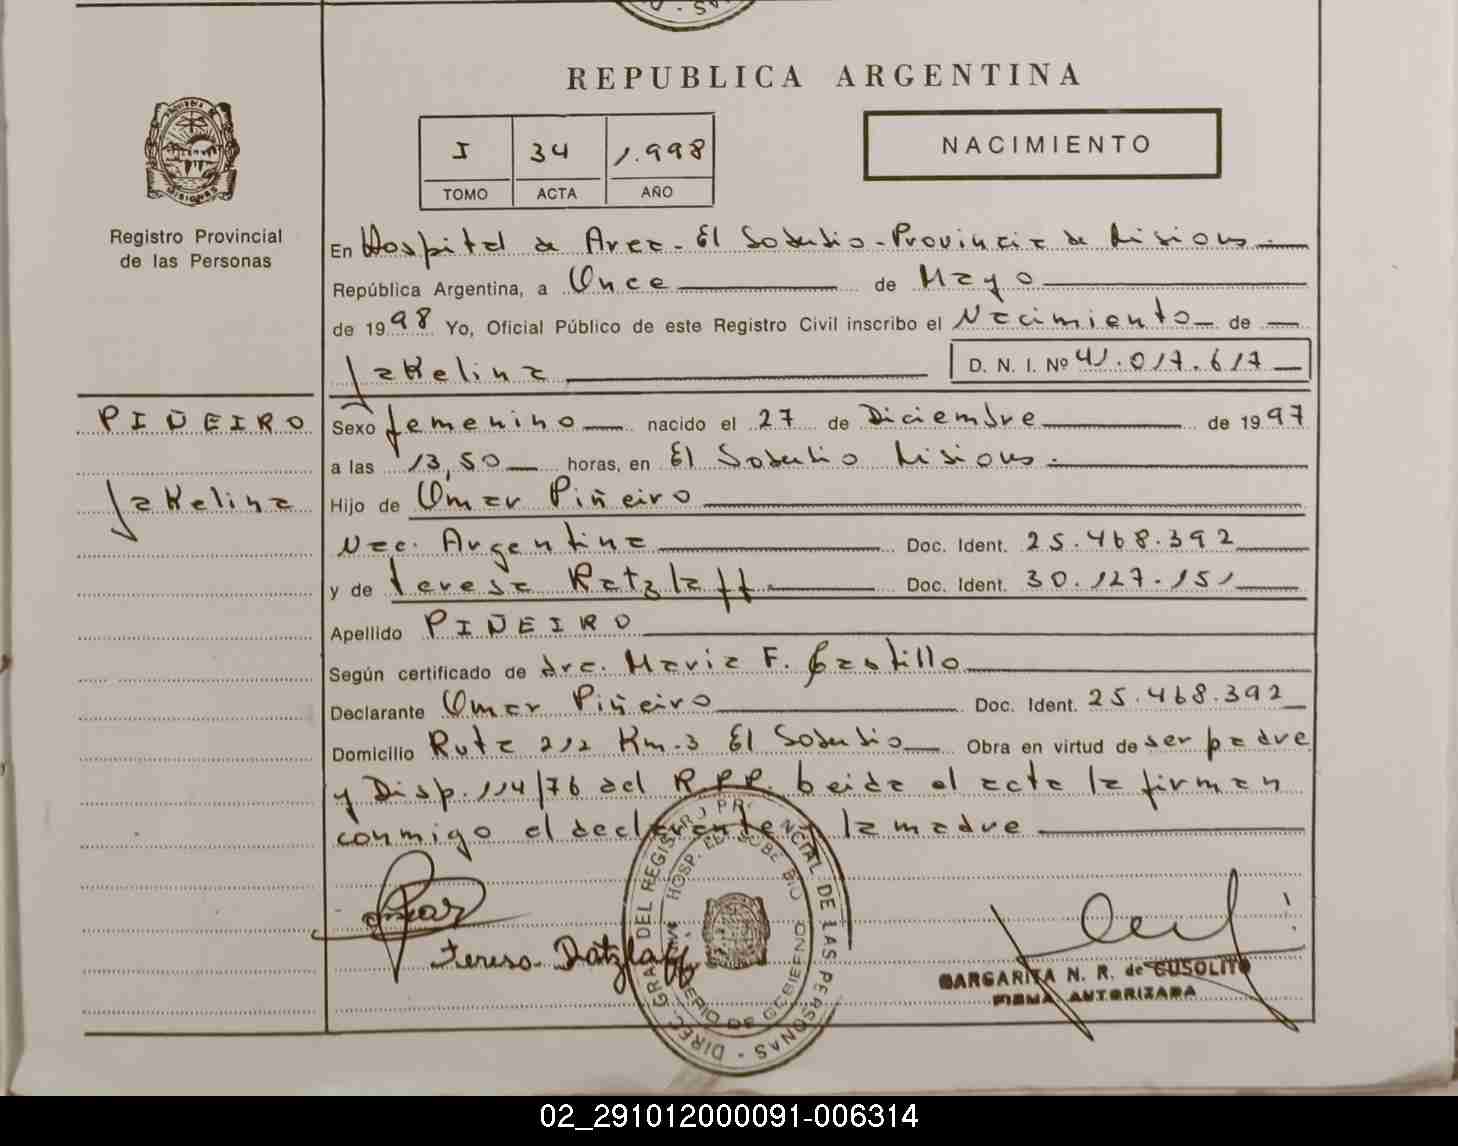 REPUBLICA ARGENTINA
I 34 1.998
TOMO ACTA AÑO
NACIMIENTO
Registro Provincial
de las Personas
En Hospital de Area - El Soberbio - Provincia de Misiones.
República Argentina, a Once de Mayo
de 1998 Yo, Oficial Público de este Registro Civil inscribo el Nacimiento de
Jakelina D. N. I. Nº 41.017.617
PIÑEIRO
Jakelina
Sexo femenino nacido el 27 de Diciembre de 1997
a las 13,50 horas, en El Soberbio Misiones.
Hijo de Omar Piñeiro
Nac. Argentina Doc. Ident. 25.468.392
y de Teresa Ratzlaff. Doc. Ident. 30.127.151
Apellido PIÑEIRO
Según certificado de dra. Maria F. Castillo
Declarante Omar Piñeiro Doc. Ident. 25.468.392
Domicilio Ruta 212 Km.3 El Soberbio Obra en virtud de ser padre
y Disp. 114/76 del R.P.P. Leida el acta la firman
conmigo el declarante y la madre
DIREC. GRAL DEL REGISTRO PROVINCIAL DE LAS PERSONAS
HOSP. EL SOBERBIO
DE GOBIERNO
Omar
Teresa Ratzlaff
MARGARITA N. R. de CUSOLITO
FIRMA AUTORIZADA
02_291012000091-006314